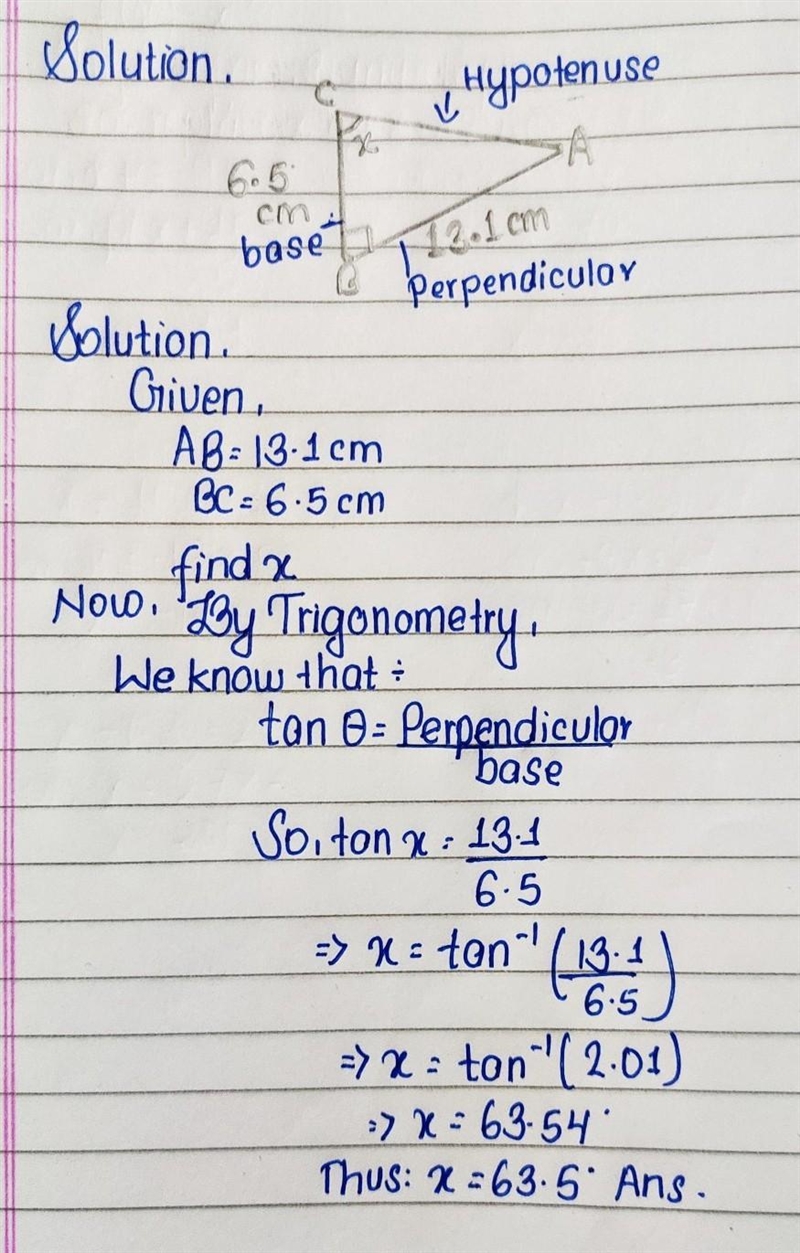 Solution.
Hypotenuse
C
x
A
6.5
cm
base
13.1 cm
B
Perpendicular
Solution.
Given,
AB = 13.1 cm
BC = 6.5 cm
find x
Now, By Trigonometry,
We know that ÷
tan θ = Perpendicular
base
So, tan x = 13.1
6.5
=> x = tan⁻¹ (13.1
6.5)
=> x = tan⁻¹ (2.01)
=> x = 63.54°
Thus: x = 63.5° Ans.